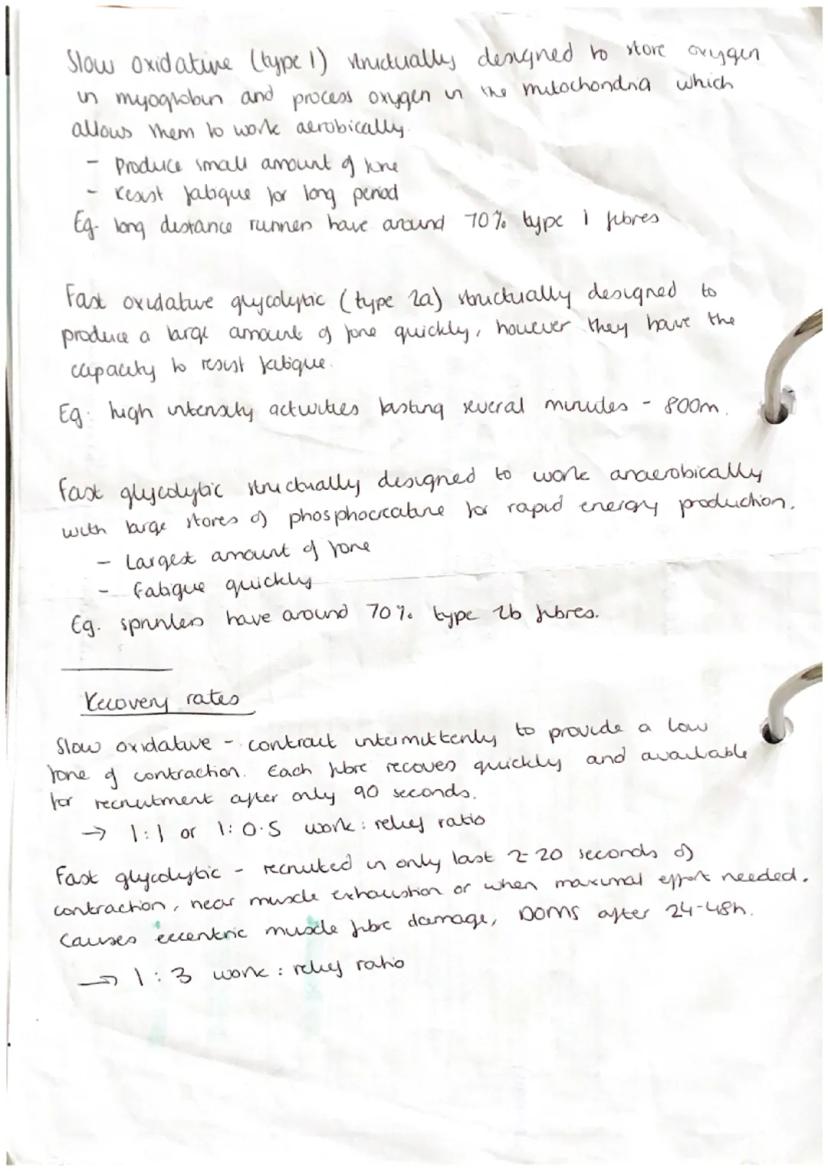 Slow oxidative (type 1) structually designed to store oxygen
in myoglobin and process oxygen in the mitochondria which
allows them to work aerobically.
- Produce small amount of force
- Resist fatigue for long period
Eg. long distance runners have around 70% type 1 fibres
Fast oxidative glycolytic (type 2a) structually designed to
produce a large amount of force quickly, however they have the
capacity to resist fatigue.
Eg. high intensity activities lasting several minutes - 800m.
Fast glycolytic structually designed to work anaerobically
with large stores of phosphocreatine for rapid energy production.
- Largest amount of force
- Fatigue quickly
Eg. sprinters have around 70% type 2b fibres.
Recovery rates
Slow oxidative - contract intermittenly to provide a low
force of contraction. Each fibre recoves quickly and available
for recruitment after only 90 seconds.
→ 1:1 or 1:0.5 work : relief ratio
Fast glycolytic - recruited in only last 2-20 seconds of
contraction, near muscle exhaustion or when maximal effort needed.
Causes eccentric muscle fibre damage, DOMS after 24-48h.
→ 1 : 3 work : relief ratio